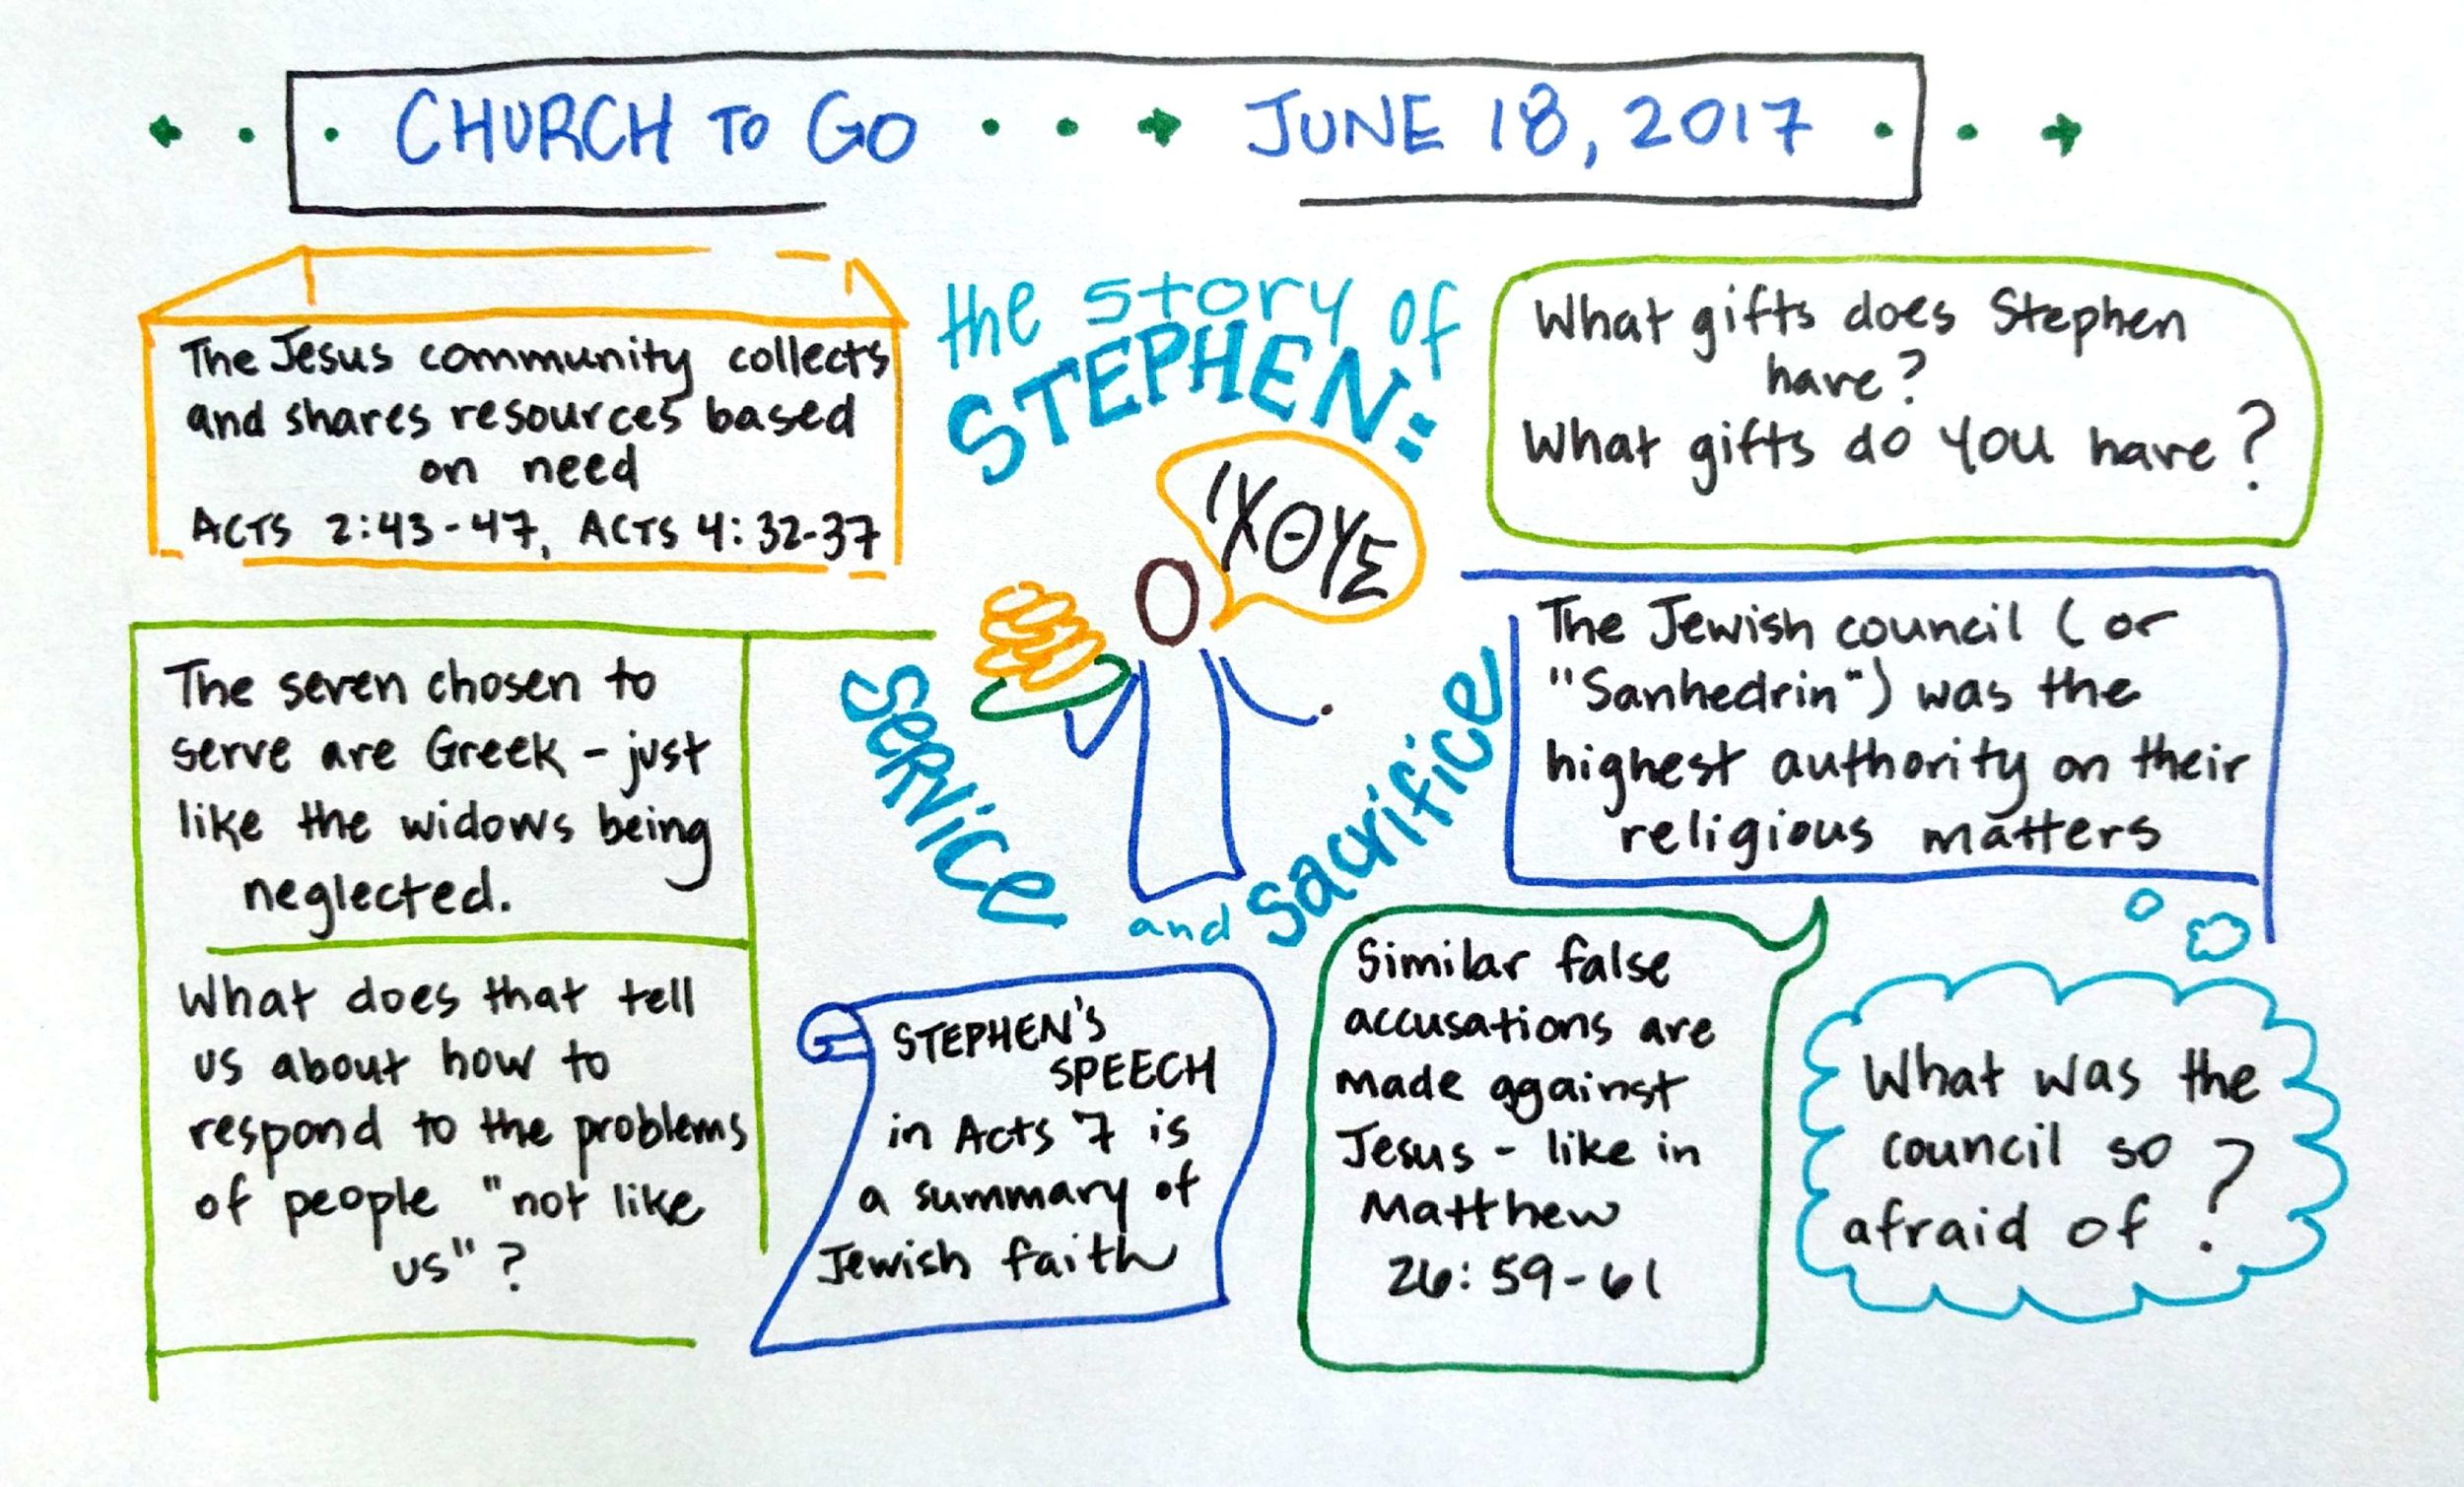 CHURCH TO GO
JUNE 18, 2017
The Jesus community collects
and shares resources based
on need
ACTS 2:43-47, ACTS 4:32-37
the story of
STEPHEN:
ΙΧΘΥΣ
service
and
sacrifice
What gifts does Stephen
have?
What gifts do YOU have?
The Jewish council (or
"Sanhedrin") was the
highest authority on their
religious matters
The seven chosen to
serve are Greek - just
like the widows being
neglected.
What does that tell
us about how to
respond to the problems
of people "not like
us"?
STEPHEN'S
SPEECH
in Acts 7 is
a summary of
Jewish faith
Similar false
accusations are
made against
Jesus - like in
Matthew
26:59-61
What was the
council so
afraid of?